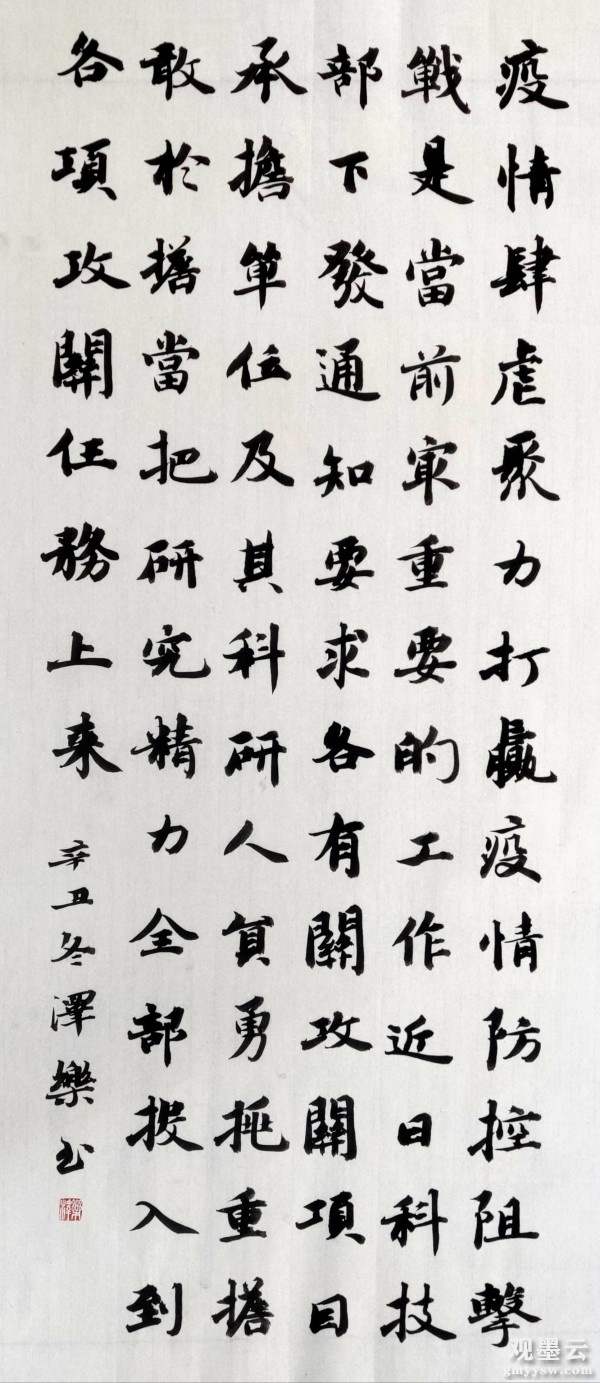 疫情肆虐聚力打贏疫情防控阻擊
戰是當前冣重要的工作近日科技
部下發通知要求各有關攻關項目
承擔單位及其科研人員勇挑重擔
敢於擔當把研究精力全部投入到
各項攻關任務上来
辛丑冬澤樂书
观墨云
gmyysw.com